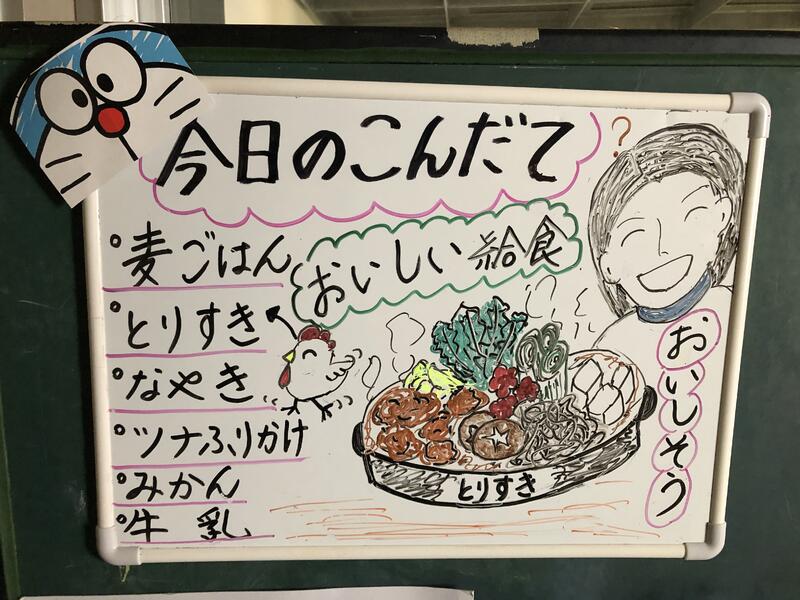 今日のこんだて
?
おいしい給食
麦ごはん
とりすき
なやき
ツナふりかけ
みかん
牛乳
とりすき
おいしそう